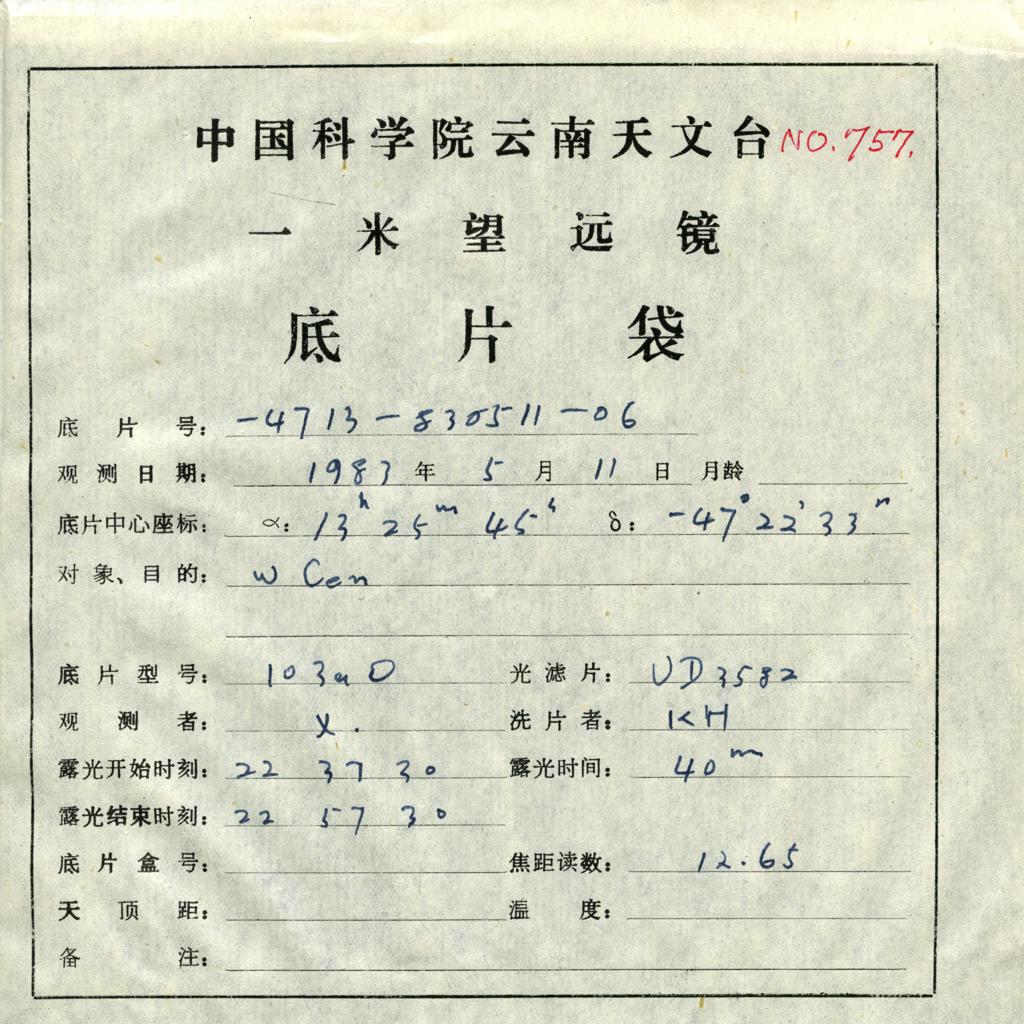 中国科学院云南天文台 NO.757.
一米望远镜
底片袋
底片号: -4713-830511-06
观测日期: 1983年 5月 11日 月龄
底片中心座标: α: 13h 25m 45s δ: -47°22′33″
对象、目的: ω Cen
底片型号: 103aO 光滤片: UD3582
观测者: X. 洗片者: KH
露光开始时刻: 22 37 30 露光时间: 40m
露光结束时刻: 22 57 30
底片盒号: 焦距读数: 12.65
天顶距: 温度:
备注: